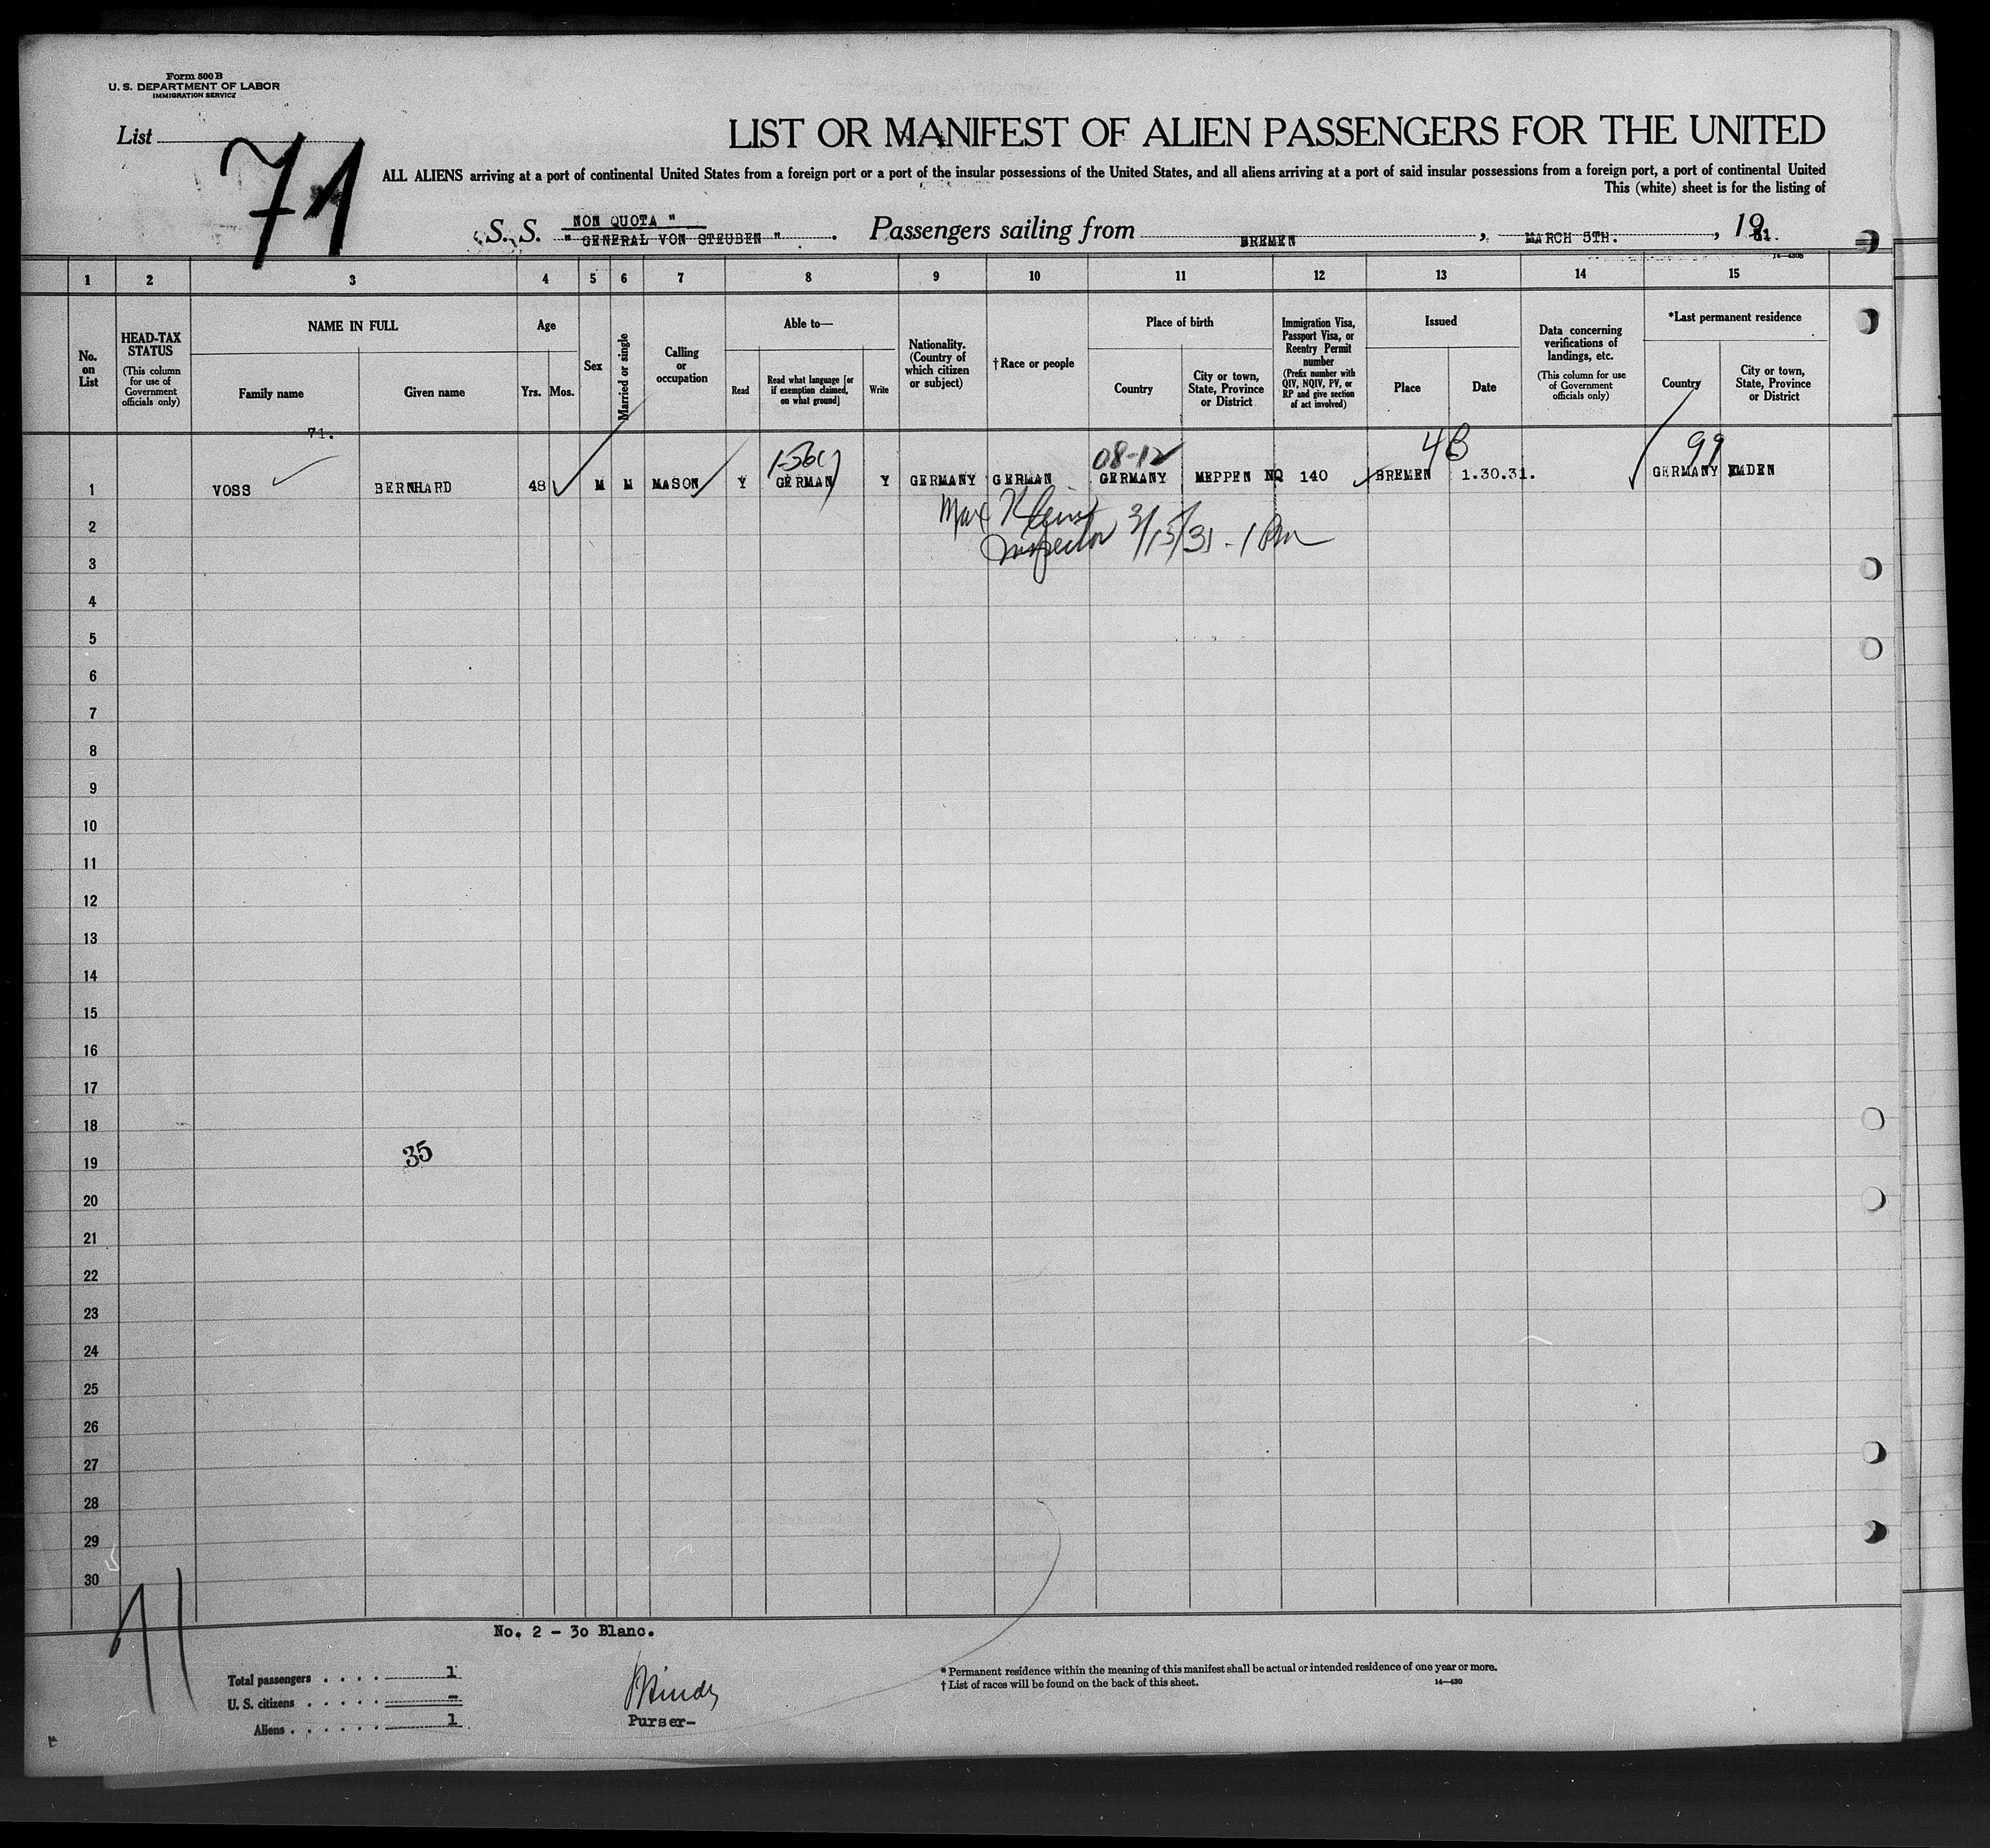 Form 500 B
U. S. DEPARTMENT OF LABOR
IMMIGRATION SERVICE
List
71
LIST OR MANIFEST OF ALIEN PASSENGERS FOR THE UNITED
ALL ALIENS arriving at a port of continental United States from a foreign port or a port of the insular possessions of the United States, and all aliens arriving at a port of said insular possessions from a foreign port, a port of continental United
This (white) sheet is for the listing of
NON QUOTA "
S. S. " GENERAL VON STEUBEN " . Passengers sailing from BREMEN , MARCH 5TH. , 1931.
1 2 3 4 5 6 7 8 9 10 11 12 13 14 15
No. on List
HEAD-TAX STATUS (This column for use of Government officials only)
NAME IN FULL
Family name
Given name
Age
Yrs.
Mos.
Sex
Married or single
Calling or occupation
Able to—
Read
Read what language [or if exemption claimed, on what ground]
Write
Nationality. (Country of which citizen or subject)
†Race or people
Place of birth
Country
City or town, State, Province or District
Immigration Visa, Passport Visa, or Reentry Permit number (Prefix number with QIV, NQIV, PV, or RP and give section of act involved)
Issued
Place
Date
Data concerning verifications of landings, etc. (This column for use of Government officials only)
*Last permanent residence
Country
City or town, State, Province or District
71.
08-12 4B 99
1 VOSS BERNHARD 48 M M MASON Y GERMAN Y GERMANY GERMAN GERMANY MEPPEN NQ 140 BREMEN 1.30.31. GERMANY EMDEN
Max
Inspector 3/15/31 - 1 Pm
2
3
4
5
6
7
8
9
10
11
12
13
14
15
16
17
18
19
35
20
21
22
23
24
25
26
27
28
29
30
71
No. 2 - 30 Blanc.
Total passengers . . . . 1
U. S. citizens . . . . . -
Aliens . . . . . . 1
Purser-
* Permanent residence within the meaning of this manifest shall be actual or intended residence of one year or more.
† List of races will be found on the back of this sheet.
14—430